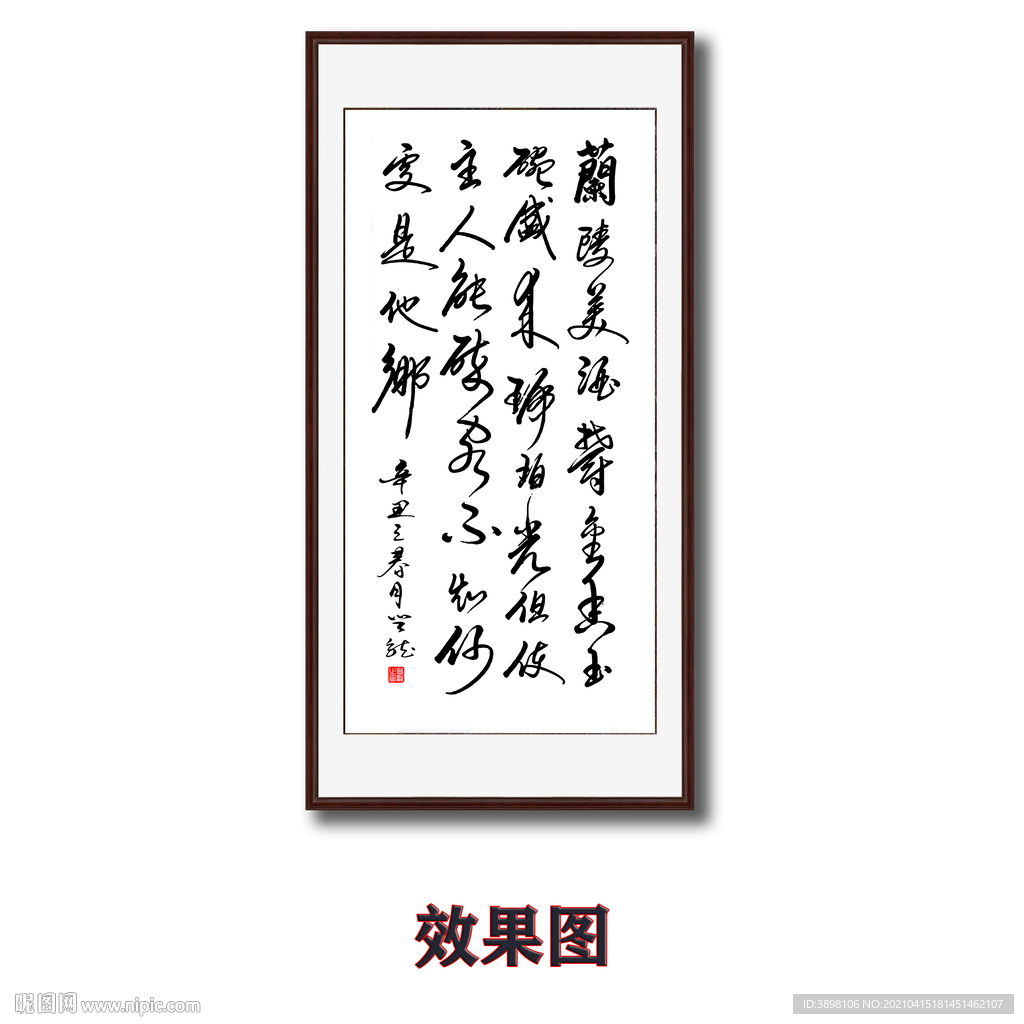 蘭陵美酒鬱金香玉
碗盛来琥珀光但使
主人能醉客不知何
處是他鄉
辛丑之月
效果图
昵图网 www.nipic.com
ID:3898106 NO:20210415181451462107